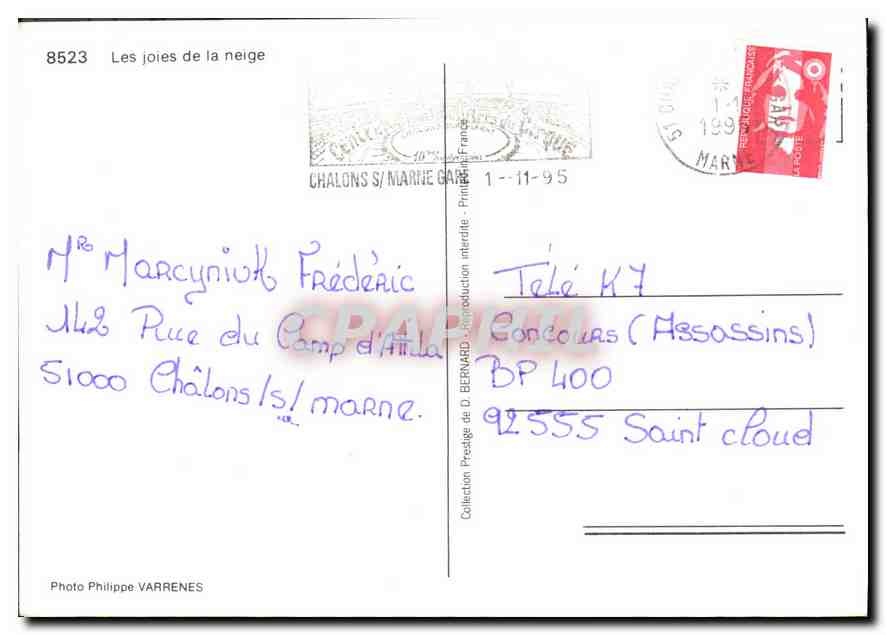 8523 Les joies de la neige
CHALONS S/ MARNE GARE 1 - 11-95
51
MARNE
REPUBLIQUE FRANÇAISE
LA POSTE
Mr Marcyniuk Frédéric
142 Rue du Camp d'Attila
51000 Châlons/s/ marne.
Collection Prestige de D. BERNARD - Reproduction interdite - Printed in France
Télé K7
Concours (Assassins)
BP 400
92555 Saint cloud
Photo Philippe VARRENES